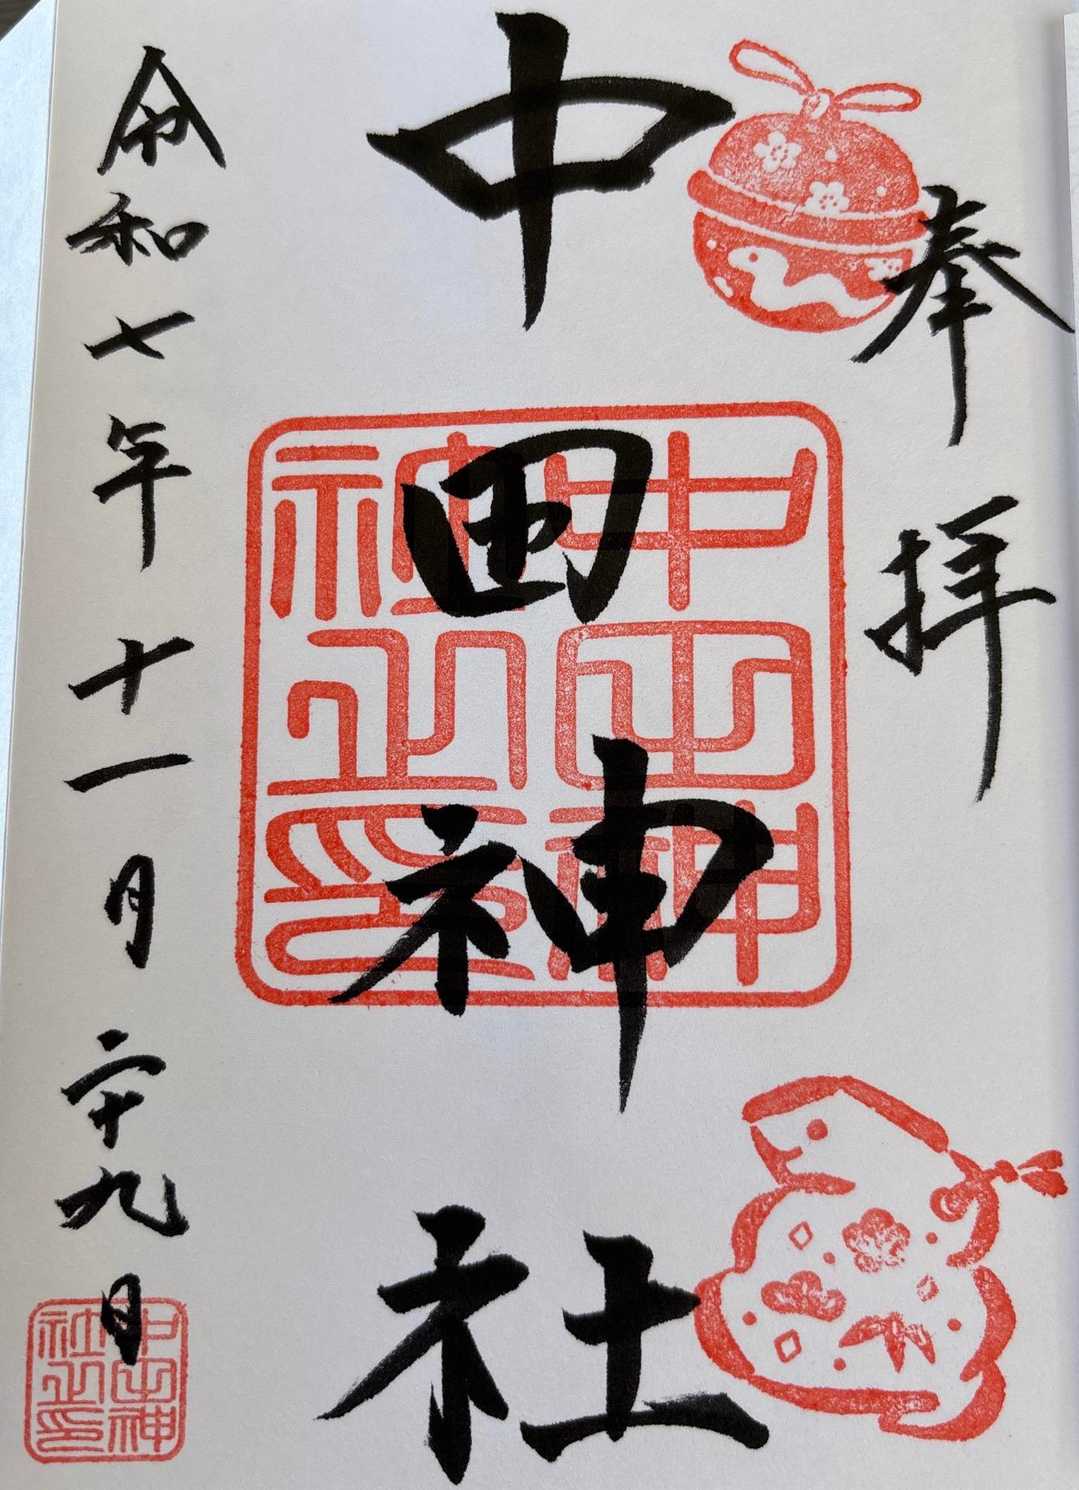 奉拝
中田神社
中田神社之印
令和七年十一月二十九日
中田神社之印